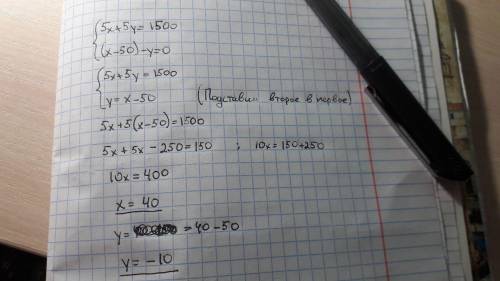 5x+5y=1500
(x-50)-y=0
5x+5y=1500
y=x-50 (Подставим второе в первое)
5x+5(x-50)=1500
5x+5x-250=150 ; 10x=150+250
10x=400
x=40
y= =40-50
y=-10